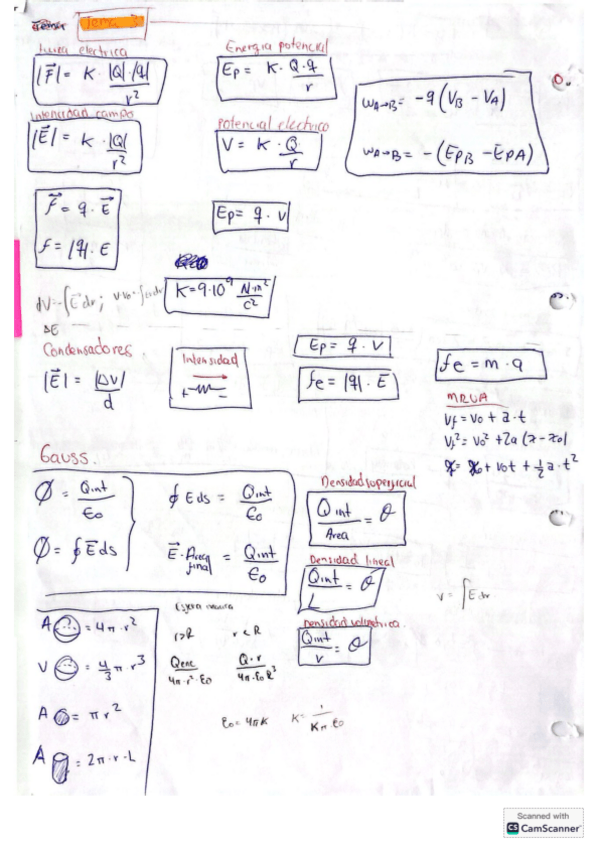 Tema 3
fuerza electrica
|F⃗| = K · |Q|·|q| / r²
Energia potencial
Ep = K · Q·q / r
W A→B = -q (VB - VA)
W A→B = - (EpB - EpA)
intensidad campo
|E⃗| = K · |Q| / r²
potencial electrico
V = K · Q / r
f⃗ = q · E⃗
f = |q| · E
Ep = q · v
K = 9·10⁹ N·m² / c²
dV = -∫E⃗dr ;
ΔE
Condensadores.
|E⃗| = |ΔV| / d
Intensidad
+ -
Ep = q · v
fe = |q| · E⃗
fe = m · a
MRUA
Vf = Vo + a·t
Vf² = Vo² + 2a (x - xo)
x = xo + vot + 1/2 a·t²
Gauss.
Ø = Qint / εo
Ø = ∮E⃗ds
∮ E ds = Qint / εo
E⃗ · Area final = Qint / εo
Densidad superficial
Qint / Area = θ
Densidad lineal
Qint / L = θ
Densidad volumetrica.
Qint / v = θ
v = ∫E dr
A = 4π·r²
V = 4/3 π·r³
A = πr²
A = 2π·r·L
Esfera maciza
r>R
r<R
Qenc / 4π·r²·εo
Q·r / 4π·εo R³
εo = 4πK
K = 1 / Kπ·εo
Scanned with
CS CamScanner